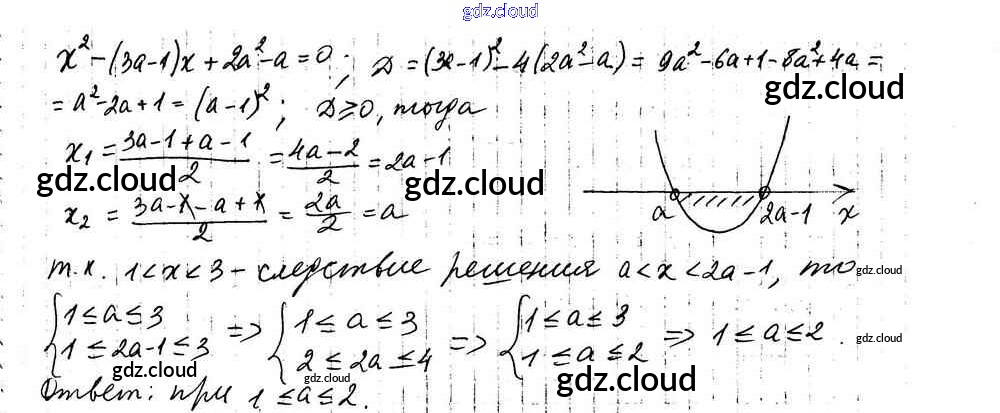 gdz.cloud
gdz.cloud
x² - (3a-1)x + 2a² - a = 0; D = (3a-1)² - 4(2a² - a) = 9a² - 6a + 1 - 8a² + 4a =
gdz.cloud
= a² - 2a + 1 = (a-1)²; D ≥ 0, тогда
x₁ = (3a-1+a-1)/2 = (4a-2)/2 = 2a-1
gdz.cloud gdz.cloud
x₂ = (3a-1-a+1)/2 = 2a/2 = a
a 2a-1 x
т.к. 1<x<3 - следствие решения a<x<2a-1, то
gdz.cloud
{1≤a≤3 => {1≤a≤3 => {1≤a≤3 => 1≤a≤2.
{1≤2a-1≤3 {2≤2a≤4 {1≤a≤2
gdz.cloud
gdz.cloud gdz.cloud gdz.cloud
Ответ: при 1≤a≤2.